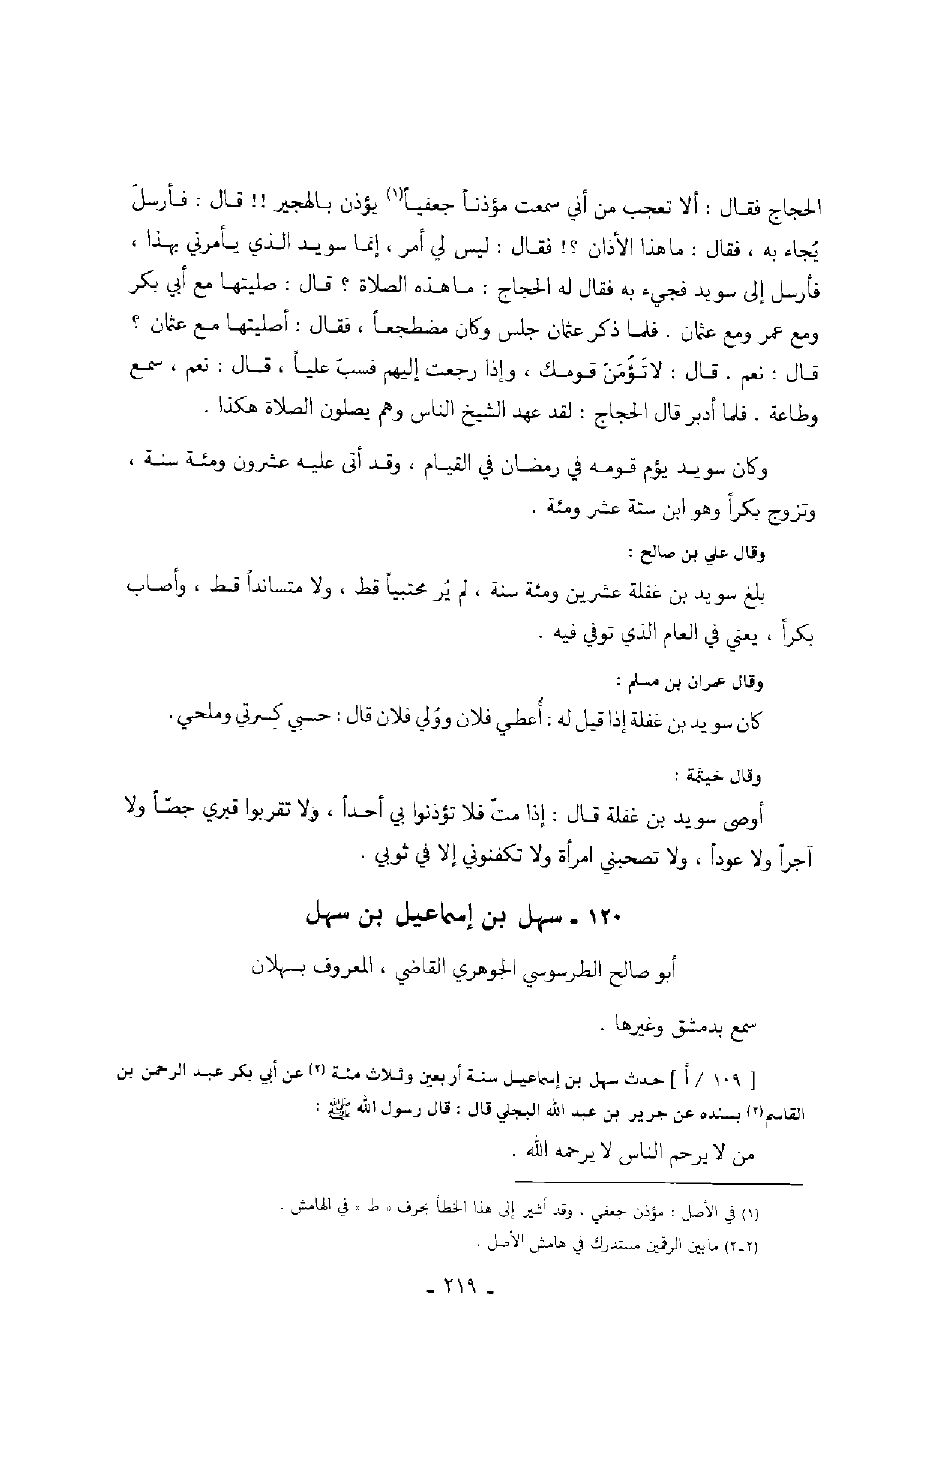 الحجاج فقال : ألا تعجب من أني سمعت مؤذناً جعفياً(١) يؤذن بالهجير !! قال : فأرسلَ
يُجاء به ، فقال : ماهذا الأذان ؟! فقال : ليس لي أمر ، إنما سويد الذي يأمرني بهذا ،
فأرسل إلى سويد فجيء به فقال له الحجاج : ماهذه الصلاة ؟ قال : صليتها مع أبي بكر
ومع عمر ومع عثمان . فلما ذكر عثمان جلس وكان مضطجعاً ، فقال : أصليتها مع عثمان ؟
قال : نعم . قال : لاتَؤُمَنّ قومك ، وإذا رجعت إليهم فسبّ علياً ، قال : نعم ، سمع
وطاعة . فلما أدبر قال الحجاج : لقد عهد الشيخ الناس وهم يصلون الصلاة هكذا .
وكان سويد يؤم قومه في رمضان في القيام ، وقد أتى عليه عشرون ومئة سنة ،
وتزوج بكراً وهو ابن ستة عشر ومئة .
وقال علي بن صالح :
بلغ سويد بن غفلة عشرين ومئة سنة ، لم يُر محتبياً قط ، ولا متسانداً قط ، وأصاب
بكراً ، يعني في العام الذي توفي فيه .
وقال عمران بن مسلم :
كان سويد بن غفلة إذا قيل له : أُعطي فلان ووُلي فلان قال : حسبي كسرتي وملحي.
وقال خيثمة :
أوصى سويد بن غفلة قال : إذا متّ فلا تؤذنوا بي أحداً ، ولا تقربوا قبري جصّاً ولا
آجراً ولا عوداً ، ولا تصحبني امرأة ولا تكفنوني إلا في ثوبي .
١٢٠ ـ سهل بن إسماعيل بن سهل
أبو صالح الطرسوسي الجوهري القاضي ، المعروف بسهلان
سمع بدمشق وغيرها .
[ ١٠٩ / أ ] حدث سهل بن إسماعيل سنة أربعين وثلاث مئة (٢) عن أبي بكر عبد الرحمن بن
القاسم(٢) بسنده عن جرير بن عبد الله البجلي قال : قال رسول الله ﷺ :
من لا يرحم الناس لا يرحمه الله .
(١) في الأصل : مؤذن جعفي ، وقد أشير إلى هذا الخطأ بحرف « ط » في الهامش .
(٢-٢) مابين الرقمين مستدرك في هامش الأصل .
ـ ٢١٩ ـ